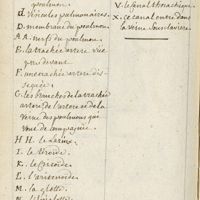 poulmon.
d. Vesicules pulmonaires.
D. membrane du poulmon.
A A. nerfs du poulmon.
E. la trachée artere vüe
par devant
F. une trachée artere dis-
sequée.
G. les branches de la trachée
artere de l'artere et de la
veine des poulmons qui
vont de compagnie.
H H. le larinx.
I. la thiroïde.
K. le Cricoïde
L. l'aritenoïde
M. la glotte
V. le Canal thorachique.
X. ce canal entre dans
la veine Sousclaviere.